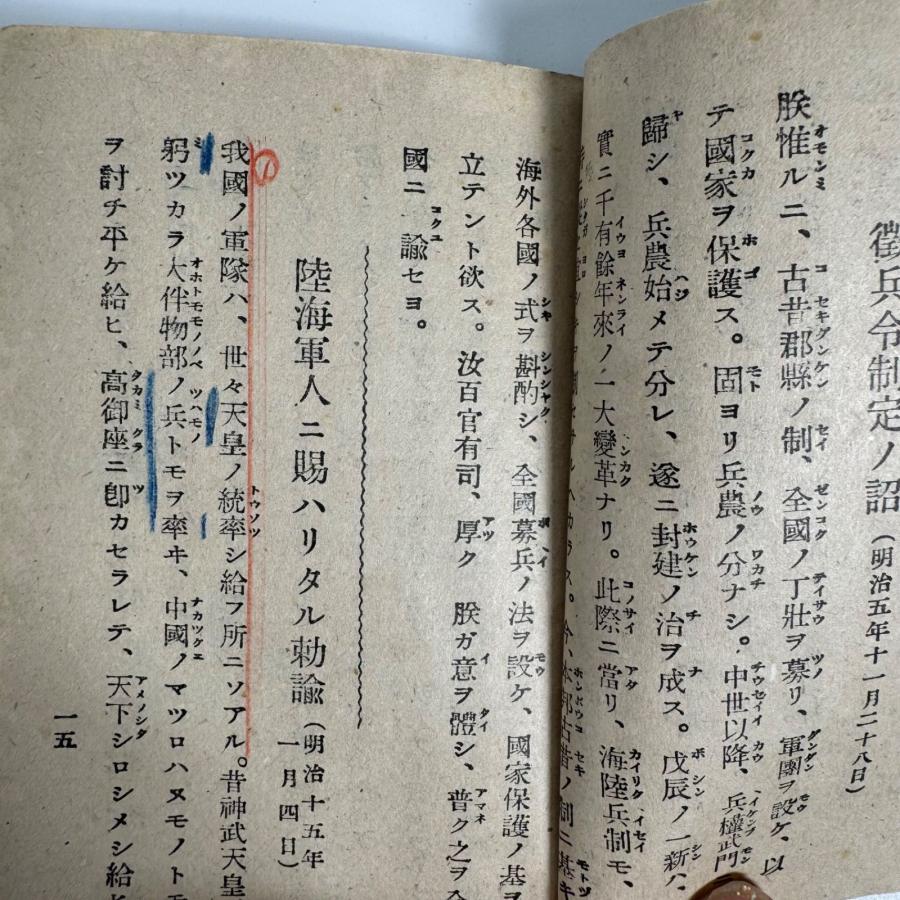 徵兵令制定ノ詔（明治五年十一月二十八日）
朕惟ルニ、古昔郡縣ノ制、全國ノ丁壯ヲ募リ、軍團ヲ設ケ、以
テ國家ヲ保護ス。固ヨリ兵農ノ分ナシ。中世以降、兵權武門
歸シ、兵農始メテ分レ、遂ニ封建ノ治ヲ成ス。戊辰ノ一新ハ、
實ニ千有餘年來ノ一大變革ナリ。此際ニ當リ、海陸兵制モ、
カラス。今、本邦古昔ノ制ニ基キ
海外各國ノ式ヲ斟酌シ、全國募兵ノ法ヲ設ケ、國家保護ノ基ヲ
立テント欲ス。汝百官有司、厚ク 朕ガ意ヲ體シ、普ク之ヲ全
國ニ 諭セヨ。
陸海軍人ニ賜ハリタル勅諭（明治十五年
一月四日）
我國ノ軍隊ハ、世々天皇ノ統率シ給フ所ニソアル。昔神武天皇
躬ツカラ大伴物部ノ兵トモヲ率ヰ、中國ノマツロハヌモノトモ
ヲ討チ平ケ給ヒ、高御座ニ卽カセラレテ、天下シロシメシ給ヒ
一五